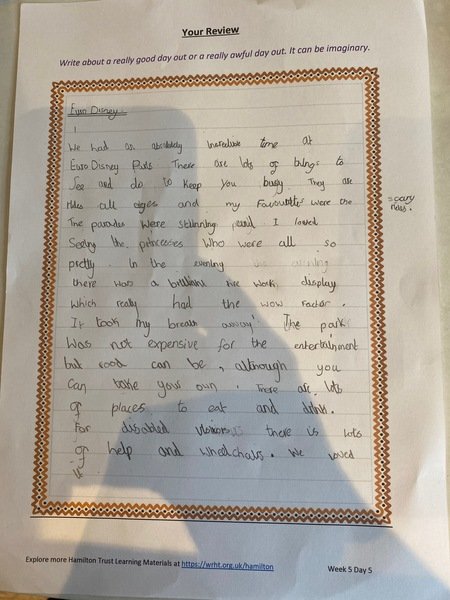 Your Review
Write about a really good day out or a really awful day out. It can be imaginary.
Euro Disney
We had an absolutely incredible time at
Euro Disney Paris There are lots of things to
See and do to keep you busy. They are
rides all ages and my favourites were the
scary rides.
The parades were stunning and I loved
Seeing the princesses who were all so
pretty. In the evening
there was a brilliant fire work display
which really had the wow factor.
It took my breath away! The park
Was not expensive for the entertainment
but food can be, although you
Can take your own. There are lots
of places to eat and drink.
For disabled visitors there is lots
of help and wheelchairs. We loved
Explore more Hamilton Trust Learning Materials at https://wrht.org.uk/hamilton
Week 5 Day 5